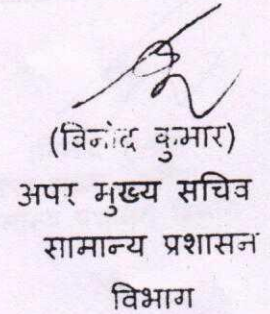 (विनोद कुमार)
अपर मुख्य सचिव
सामान्य प्रशासन
विभाग